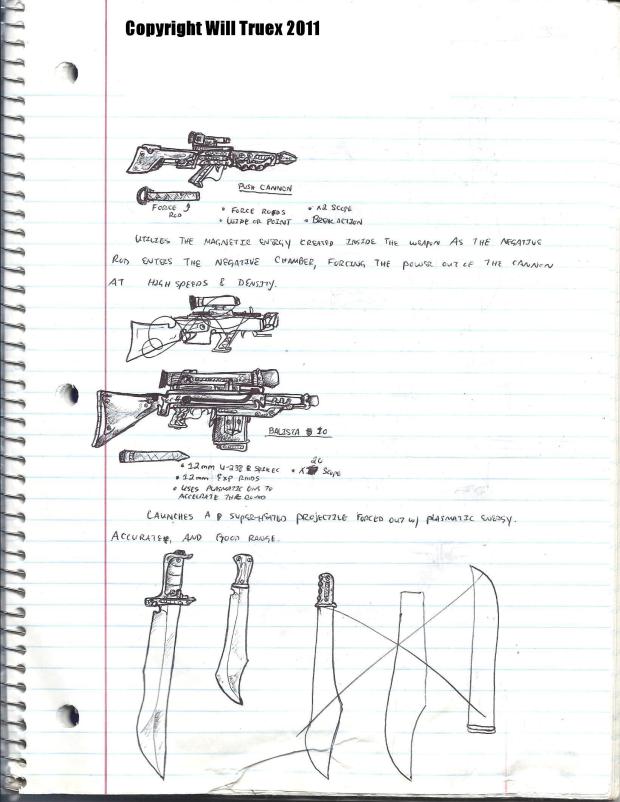 Copyright Will Truex 2011
PUSH CANNON
FORCE ROD
• FORCE RODS • X2 SCOPE
• WIDE OR POINT • BREAK ACTION
UTILIZES THE MAGNETIC ENERGY CREATED INSIDE THE WEAPON AS THE NEGATIVE
ROD ENTERS THE NEGATIVE CHAMBER, FORCING THE POWER OUT OF THE CANNON
AT HIGH SPEEDS & DENSITY.
BALISTA 20
• 12mm U-238 SPIKES • X 20 SCOPE
• 12mm EXP RNDS
• USES PLASMATIC TO
ACCELERATE THE ROUND
LAUNCHES A SUPER-HEATED PROJECTILE FORCED OUT W/ PLASMATIC ENERGY.
ACCURATE, AND GOOD RANGE.